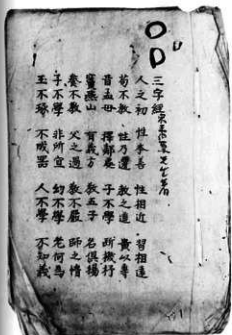 三字經
人之初 性本善 性相近 習相遠
苟不教 性乃遷 教之道 貴以專
昔孟母 擇鄰處 子不學 斷機杼
竇燕山 有義方 教五子 名俱揚
養不教 父之過 教不嚴 師之惰
子不學 非所宜 幼不學 老何為
玉不琢 不成器 人不學 不知義